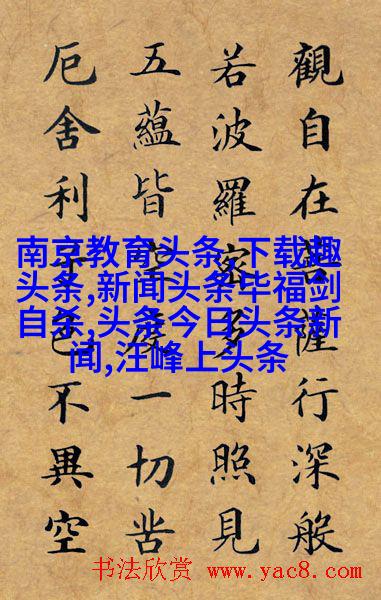 觀自在菩薩行深般
若波羅密多時照見
五蘊皆空度一切苦
厄舍利子色不異空
南京教育头条,下载趣
头条,新闻头条毕福剑
自杀,头条今日头条新
闻,汪峰上头条
书法欣赏 www.yac8.com